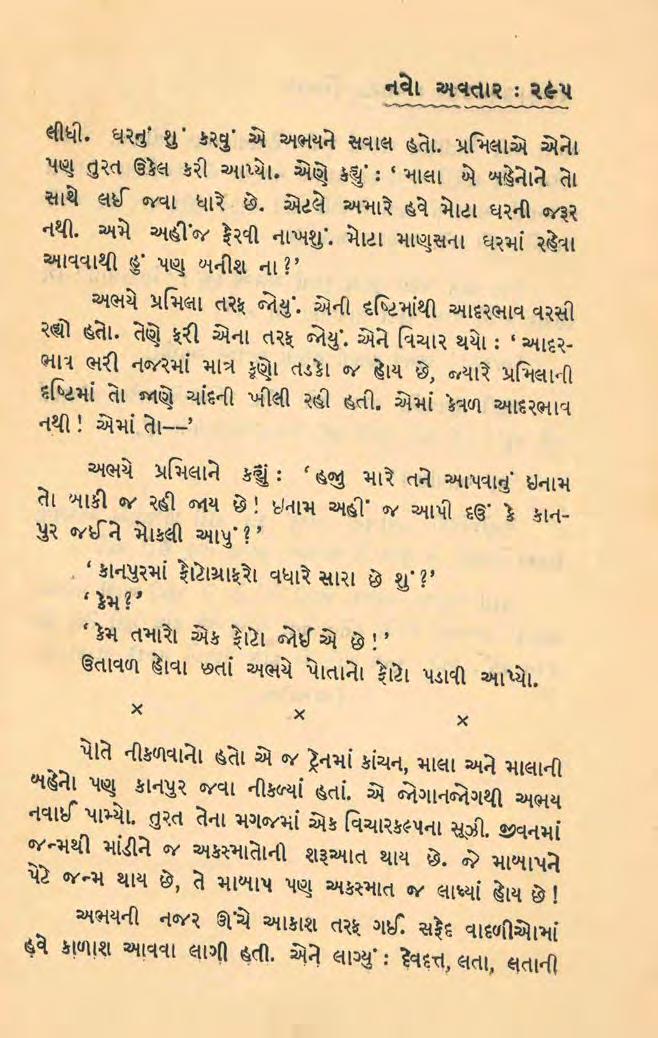 નવો અવતાર : ૨૯૫
લીધી. ઘરનું શું કરવું એ અભયને સવાલ હતો. પ્રમિલાએ એનો
પણ તુરત ઉકેલ કરી આપ્યો. એણે કહ્યું : ‘ માલા એ બહેનોને તો
સાથે લઈ જવા ધારે છે. એટલે અમારે હવે મોટા ઘરની જરૂર
નથી. અમે અહીંજ ફેરવી નાખશું. મોટા માણસના ઘરમાં રહેવા
આવવાથી હું પણ બનીશ ના ?’
અભયે પ્રમિલા તરફ જોયું. એની દૃષ્ટિમાંથી આદરભાવ વરસી
રહ્યો હતો. તેણે ફરી એના તરફ જોયું. એને વિચાર થયો : ‘ આદર-
ભાવ ભરી નજરમાં માત્ર કૂણો તડકો જ હોય છે, જ્યારે પ્રમિલાની
દૃષ્ટિમાં તો જાણે ચાંદની ખીલી રહી હતી. એમાં કેવળ આદરભાવ
નથી ! એમાં તો——’
અભયે પ્રમિલાને કહ્યું : ‘ હજુ મારે તને આપવાનું ઇનામ
તો બાકી જ રહી જાય છે ! ઇનામ અહીં જ આપી દઉં કે કાન-
પુર જઈને મોકલી આપું ?’
‘ કાનપુરમાં ફોટોગ્રાફરો વધારે સારા છે શું ?’
‘ કેમ ?’
‘ કેમ તમારો એક ફોટો જોઈએ છે !’
ઉતાવળ હોવા છતાં અભયે પોતાનો ફોટો પડાવી આપ્યો.
× × ×
પોતે નીકળવાનો હતો એ જ ટ્રેનમાં કાંચન, માલા અને માલાની
બહેનો પણ કાનપુર જવા નીકળ્યાં હતાં. એ જોગાનજોગથી અભય
નવાઈ પામ્યો. તુરત તેના મગજમાં એક વિચારકલ્પના સૂઝી. જીવનમાં
જન્મથી માંડીને જ અકસ્માતોની શરૂઆત થાય છે. જે માબાપને
પેટે જન્મ થાય છે, તે માબાપ પણ અકસ્માત જ લાધ્યાં હોય છે !
અભયની નજર ઊંચે આકાશ તરફ ગઈ. સફેદ વાદળીઓમાં
હવે કાળાશ આવવા લાગી હતી. એને લાગ્યું : દેવદત્ત, લતા, લતાની